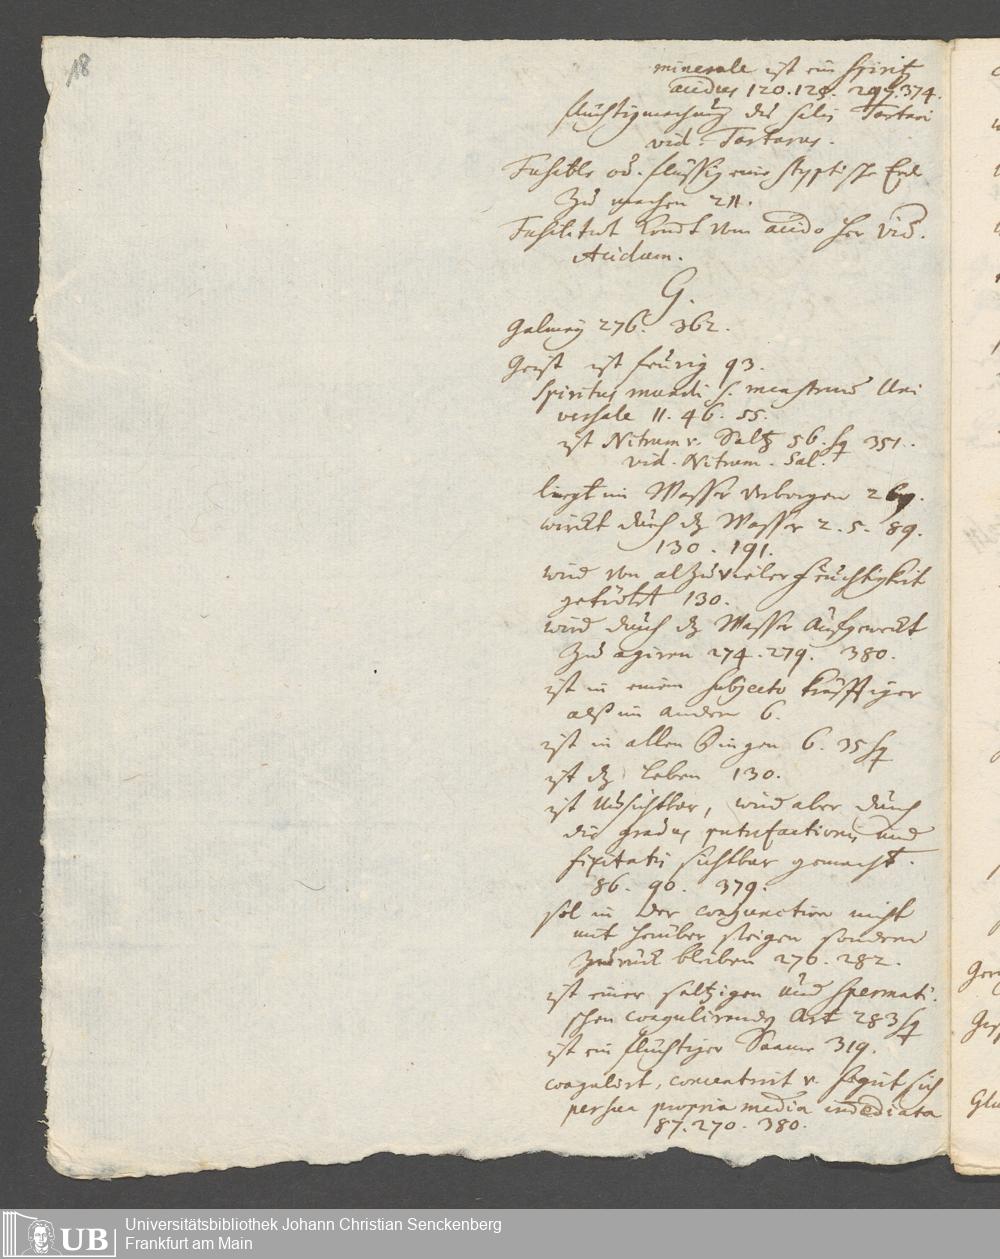 18
minerale ist ein Spirit
acidus 120. 129. 297. 374.
flüchtigmachung des salis Tartari
vid. Tartarus.
Fusible od. flüssig eine styptische Erde
zu machen 211.
Fusilitat komt vom acido her vid.
Acidum.
G.
Galmey 276. 362.
Geist ist feurig 93.
Spiritus mundi s. menstruum Uni
versale 11. 46. 55.
ist Nitrum v. Saltz 56. sq 351.
vid. Nitrum. Sal.
liegt im Wasser verborgen
wirckt durch dz Wasser 2. 5. 89.
130. 191.
wird von alzuvieler feuchtigkeit
getödtet 130.
wird durch dz Wasser aufgeweckt
zu agiren 274. 279. 380.
ist in einem subjecto kräfftiger
alß im andern 6.
ist in allen Dingen 6. 35 sq
ist dz Leben 130.
ist unsichtbar, wird aber durch
die gradus putrefactionis und
fixitatis sichtbar gemacht.
86. 90. 379.
sol in der conjunction nicht
mit herüber steigen sondern
zurück bleiben 276. 282.
ist einer saltzigen und spermati
schen coagulirenden Art 283 sq
ist ein flüchtiger Saame 319.
coagulirt, concentrirt v. figirt sich
per sua propria media immediata
87. 270. 380.
Universitätsbibliothek Johann Christian Senckenberg
Frankfurt am Main
UB